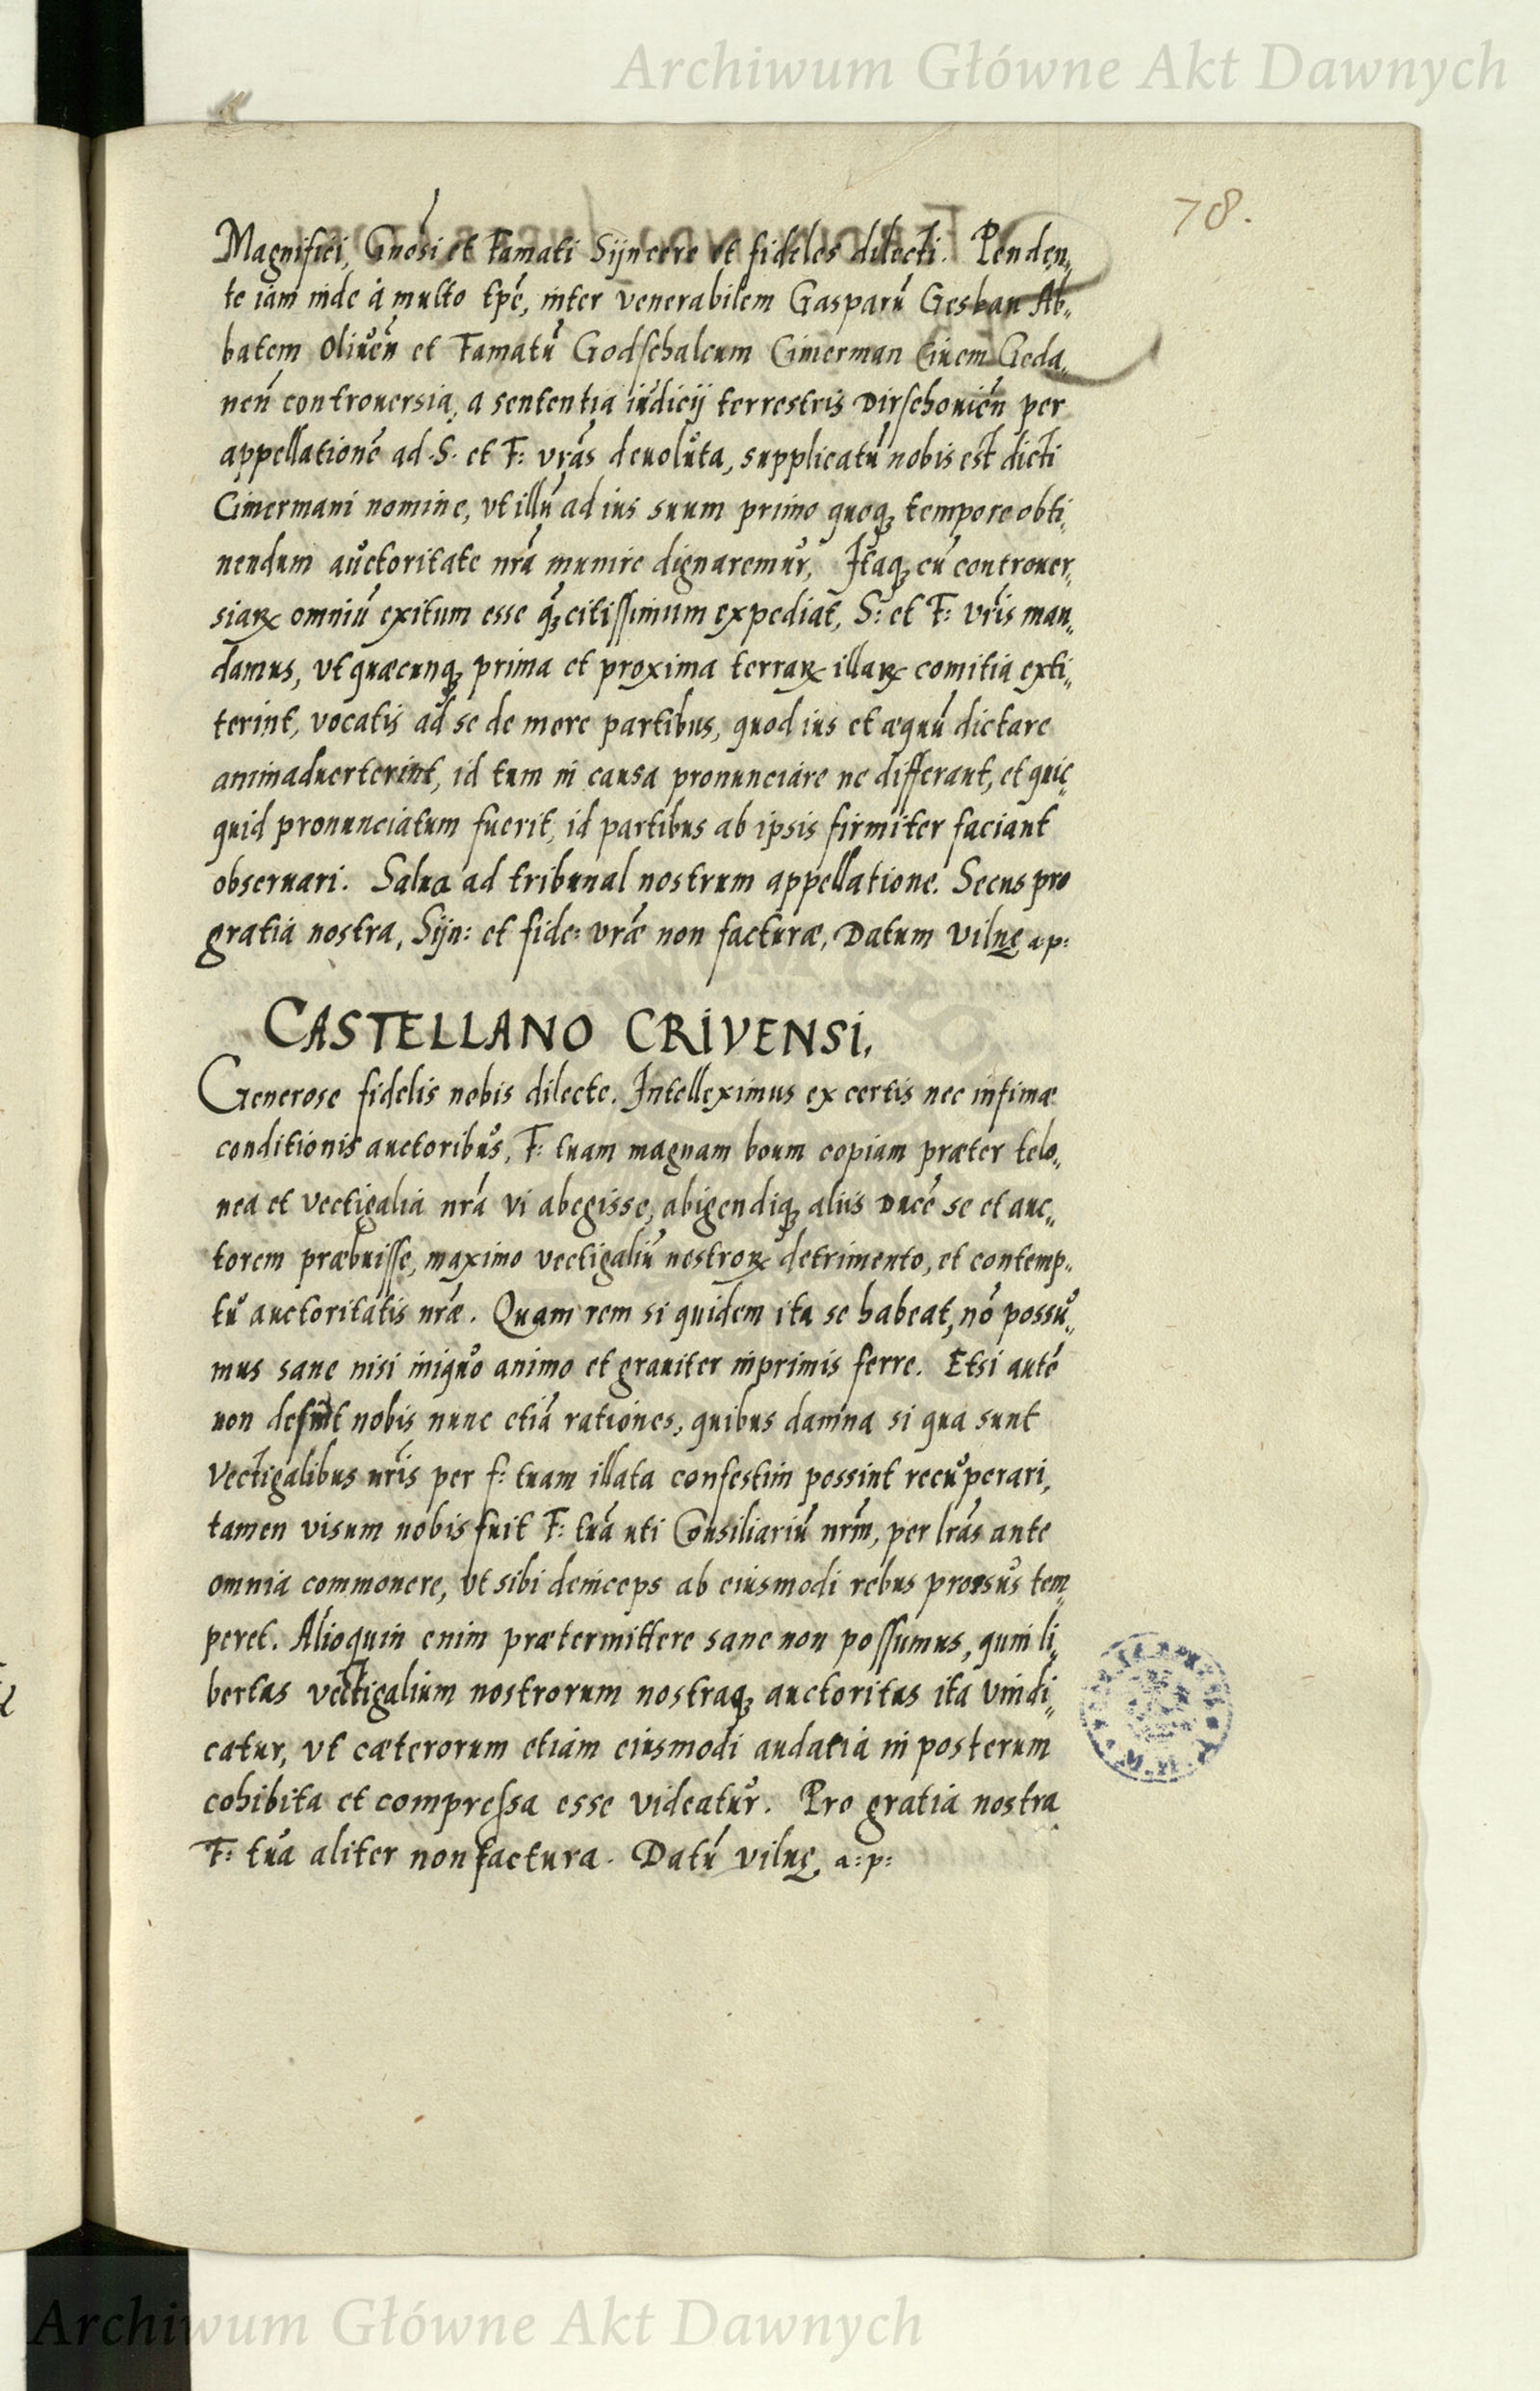 Archiwum Główne Akt Dawnych
78.
Magnifici, Gnōsi et Famati Sijncere et fideles dilecti. Penden„
te iam inde à multo tpē, inter venerabilem Gasparū Gesbau Ab„
batem Oliuēn et Famatū Godschalcum Cimerman Ciuem Geda„
nēn controuersia, a sententia iudicij terrestris Dirschouiēn per
appellationē ad S. et F: vrās deuoluta, supplicatū nobis est dicti
Cimermani nomine, vt illū ad ius suum primo quoq₃ tempore obti„
nendum auctoritate nrā munire dignaremur, Itaq₃ cū controuer„
siaꝝ omniū exitum esse q̄₃ citissimum expediat, S: et F: vrīs man„
damus, vt quæcunq₃ prima et proxima terraꝝ illaꝝ comitia exti„
terint, vocatis ad se de more partibus, quod ius et æquū dictare
animaduerterint, id tum in causa pronunciare ne differant, et quic„
quid pronunciatum fuerit, id partibus ab ipsis firmiter faciant
obseruari. Salua ad tribunal nostrum appellatione. Secus pro
gratia nostra, Sijn: et fide: vræ non facturæ, Datum Vilnę a:p:
CASTELLANO CRIVENSI.
Generose fidelis nobis dilecte. Intelleximus ex certis nec infimæ
conditionis auctoribus, F: tuam magnam boum copiam præter telo„
nea et vectigalia nrā vi abegisse, abigendiq₃ aliis Ducē se et auc„
torem præbuisse, maximo vectigaliū nostroꝝ detrimento, et contemp„
tu auctoritatis nræ. Quam rem si quidem ita se habeat, nō possu„
mus sane nisi iniquo animo et grauiter inprimis ferre. Etsi autē
non desint nobis nunc etiā rationes, quibus damna si qua sunt
Vectigalibus nrīs per f: tuam illata confestim possint recuperari,
tamen visum nobis fuit F: tuā uti Consiliariū nrm̄, per lrās ante
omnia commonere, vt sibi deinceps ab eiusmodi rebus prorsus tem„
peret. Alioquin enim prætermittere sane non possumus, quin li„
bertas vectigalium nostrorum nostraq₃ auctoritas ita vindi„
catur, vt cæterorum etiam eiusmodi audatia in posterum
cohibita et compressa esse videatur. Pro gratia nostra
F: tuā aliter non factura. Datū Vilnę a:p:
Archiwum Główne Akt Dawnych